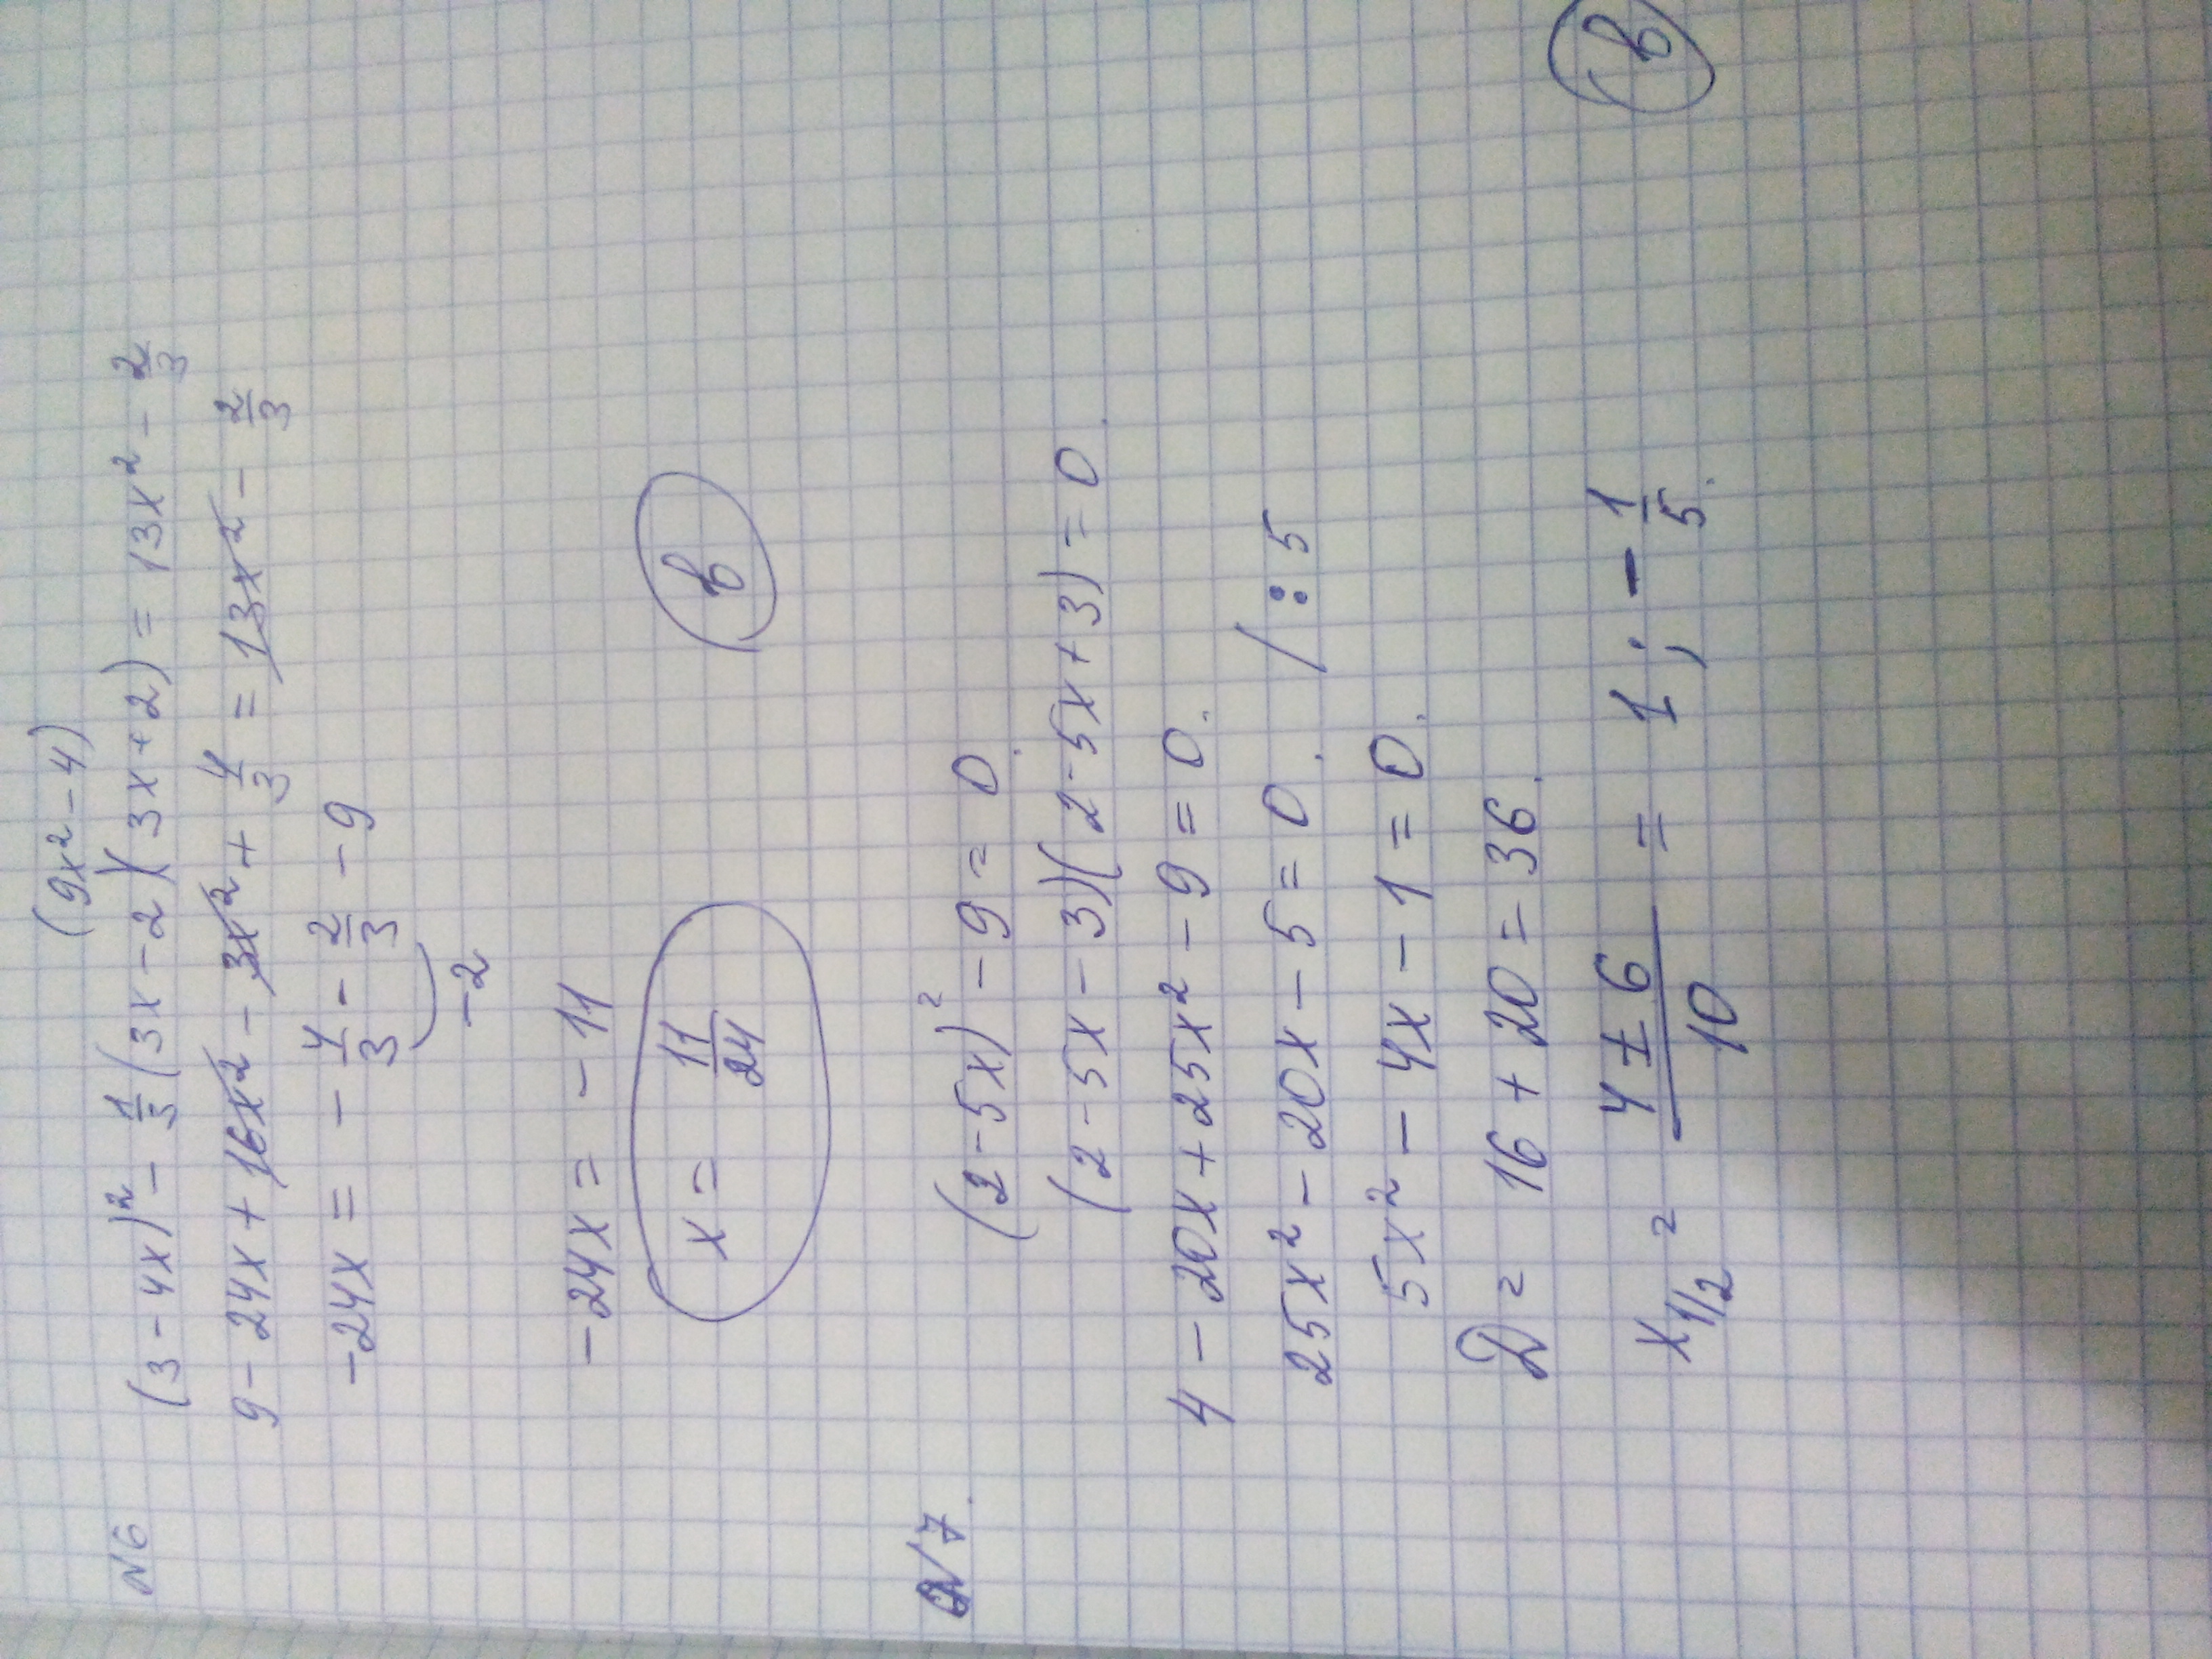 (9x² - 4)
N6 (3 - 4x)² - 1/3 (3x - 2)(3x + 2) = 13x² - 2/3
9 - 24x + 16x² - 3x² + 4/3 = 13x² - 2/3
-24x = - 4/3 - 2/3 - 9
-2
-24x = - 11
x = 11/24 в
N7. (2 - 5x)² - 9 = 0.
(2 - 5x - 3)(2 - 5x + 3) = 0.
4 - 20x + 25x² - 9 = 0.
25x² - 20x - 5 = 0. / : 5
5x² - 4x - 1 = 0.
D = 16 + 20 = 36.
x1/2 = 4 ± 6 / 10 = 1 ; - 1/5. в